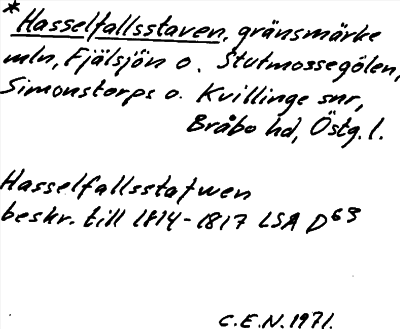 * Hasselfallsstaven, gränsmärke
mln, Fjälsjön o. Stutmossegölen,
Simonstorps o. Kvillinge snr,
Bråbo hd, Östg. l.
Hasselfallsstafwen
beskr. till 1814-1817 LSA D63
C.E.N. 1971.